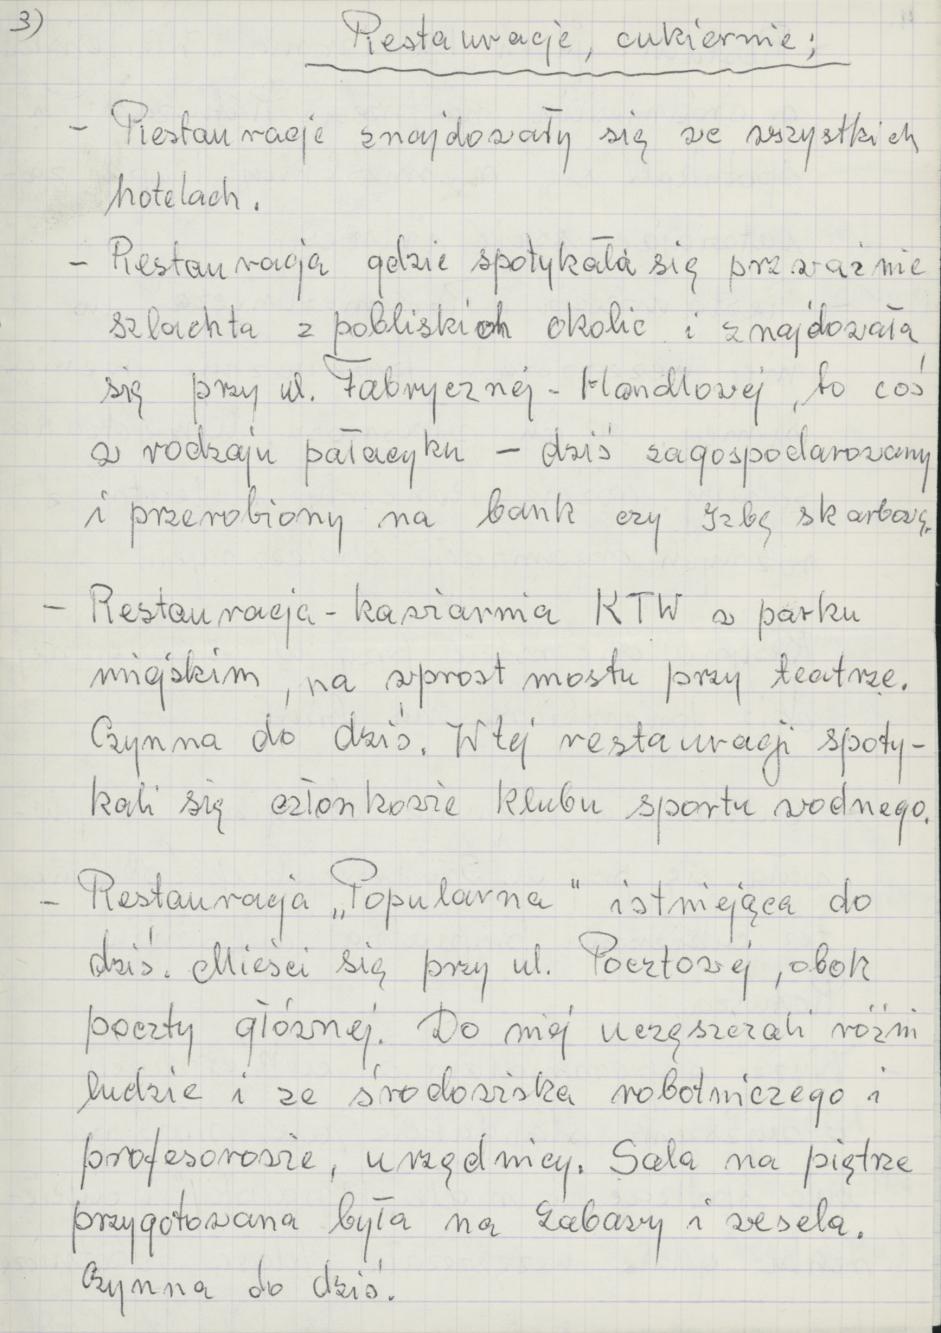 3)
Restauracje, cukiernie;
- Restauracje znajdowały się we wszystkich
hotelach.
- Restauracja gdzie spotykała się przeważnie
szlachta z pobliskich okolic i znajdowała
się przy ul. Fabrycznej - Handlowej, to coś
w rodzaju pałacyku - dziś zagospodarowany
i przerobiony na bank czy Izbę skarbową.
- Restauracja - kawiarnia KTW w parku
miejskim, na wprost mostu przy teatrze.
Czynna do dziś. W tej restauracji spoty-
kali się członkowie klubu sportu wodnego.
- Restauracja „Popularna" istniejąca do
dziś. Mieści się przy ul. Pocztowej, obok
poczty głównej. Do niej uczęszczali różni
ludzie i ze środowiska robotniczego i
profesorowie, urzędnicy. Sala na piętrze
przygotowana była na zabawy i wesela.
Czynna do dziś.